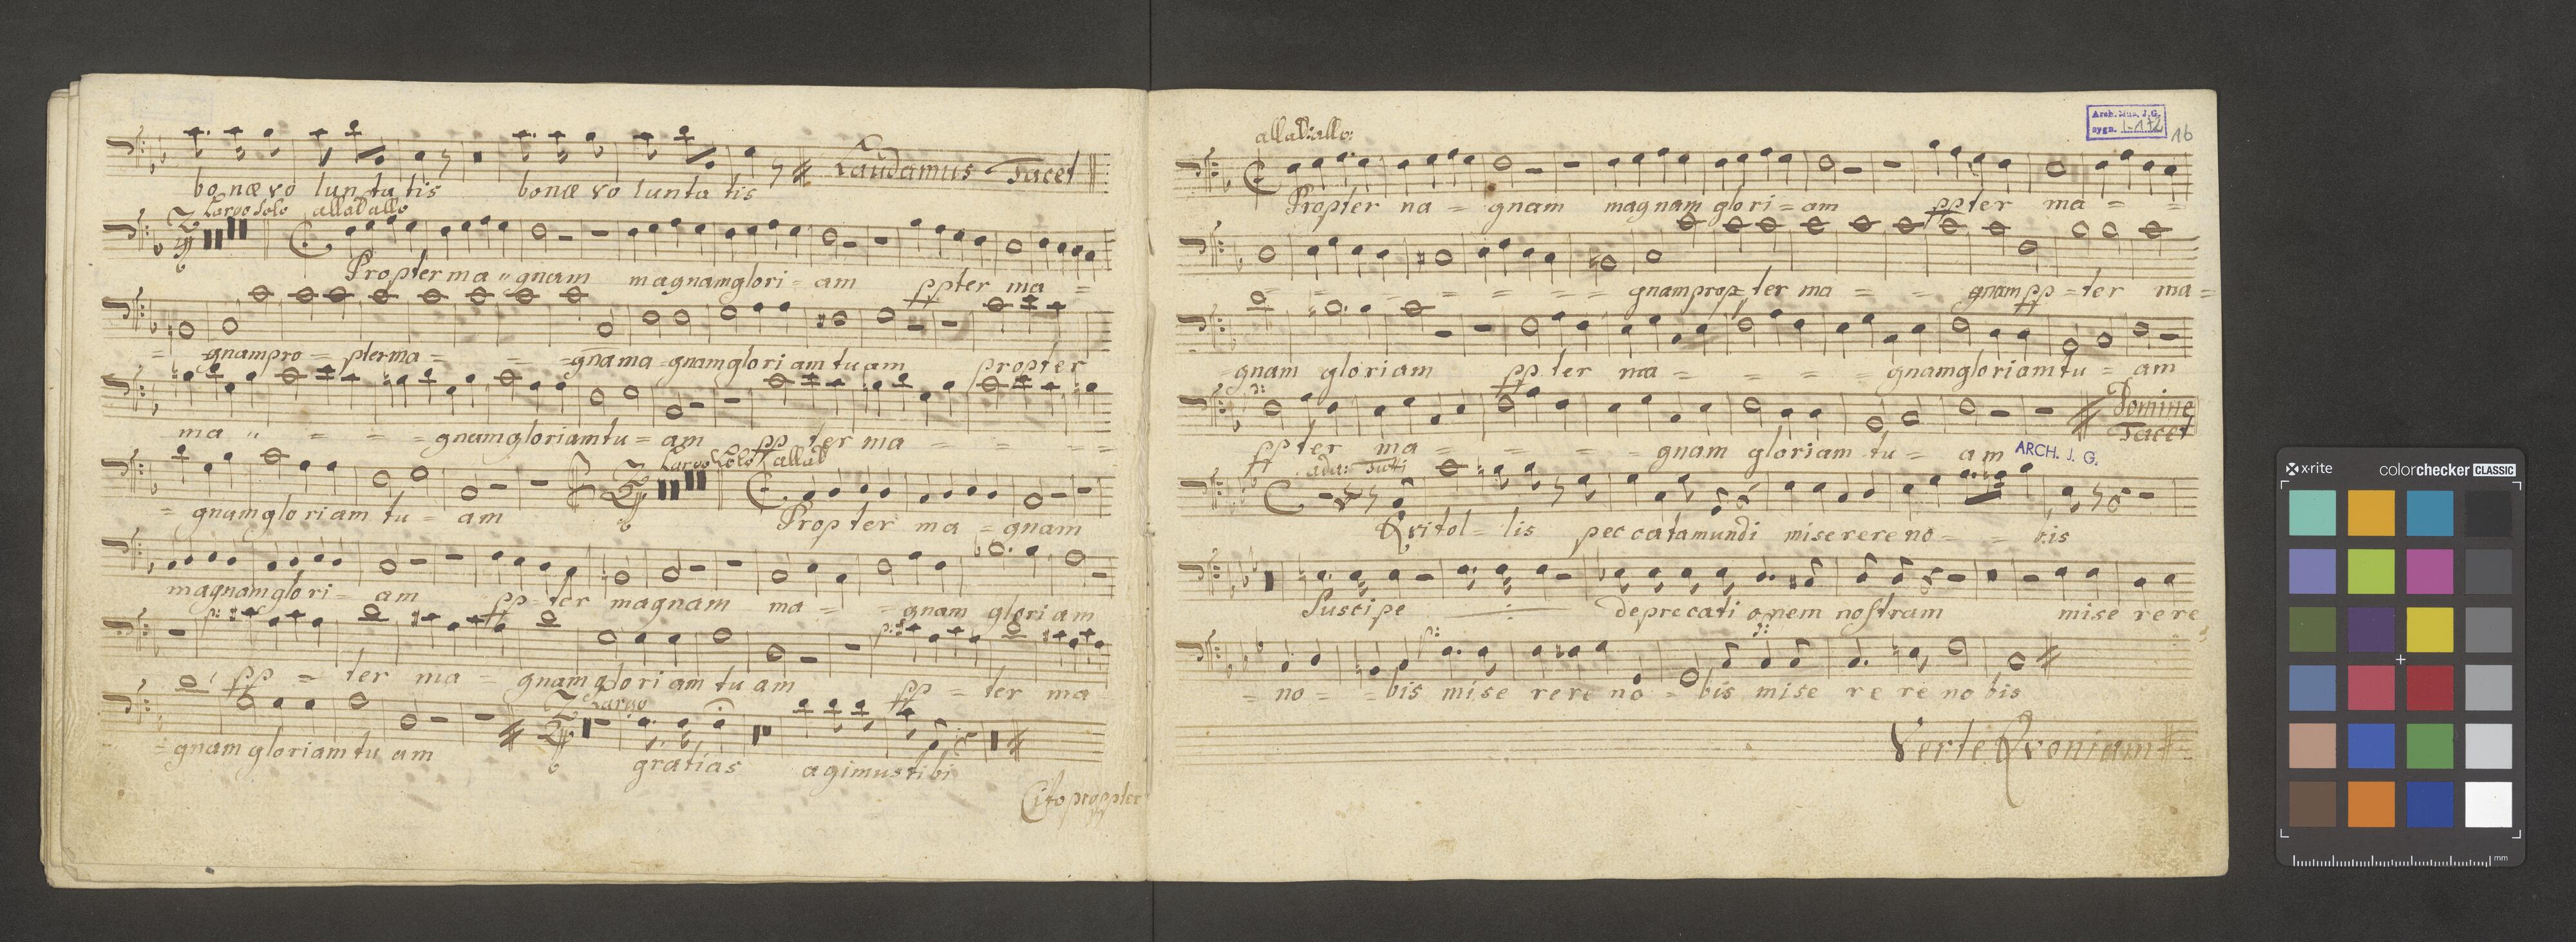 bonæ vo lun ta tis bonæ vo lun ta tis Laudamus Tacet
Largo Solo allab allo
Propter ma " gnam magnam glori = am ppter ma =
= gnam pro = pter ma = = = gnam ma gnam gloriam tuam propter
ma " = = = = gnam gloriam tu = am pp ter ma = = = =
Largo Solo allab
= gnam gloriam tu = am Propter ma = gnam
magnam glori = am pp = ter magnam ma = = gnam gloriam
p: p:
pp = ter ma = gnam gloriam tu am pp = ter ma
Largo
= gnam gloriam tu am gratias agimus tibi
Cito propter
Arch. Mus. J. G.
sygn. I-172
16
allab: allo:
Propter na = gnam magnam glori = am ppter ma = =
= = = = = = = gnam prop = ter ma = = gnam pp = ter ma =
= gnam gloriam pp ter ma = = = = gnam gloriam tu = am
p:
Domine
Tacet
ppter ma = = = = gnam gloriam tu = am
ARCH. J. G.
ada: Tutti
Qvi tol = lis peccata mundi miserere no = = bis
Suscipe : deprecationem nostram miserere
p: p:
= no = = bis mise rere no = bis mise re re no bis
Verte Qvoniam
x-rite
colorchecker CLASSIC
mm